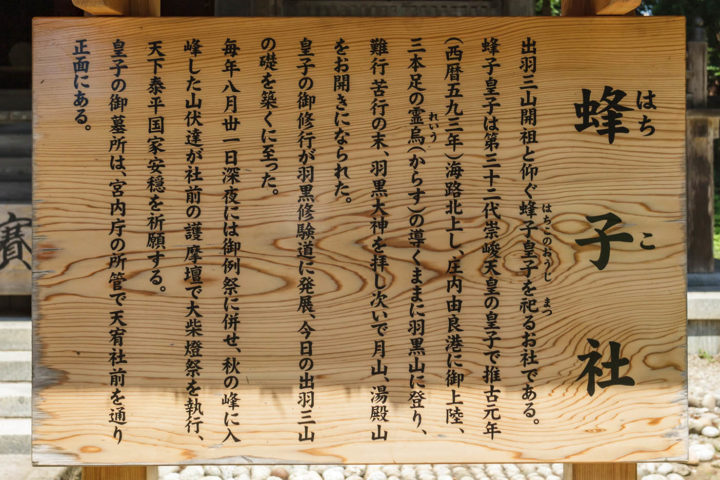 蜂子社
はち こ
出羽三山開祖と仰ぐ蜂子皇子を祀るお社である。
はちこのおうじ まつ
蜂子皇子は第三十二代崇峻天皇の皇子で推古元年
(西暦五九三年)海路北上し、庄内由良港に御上陸、
三本足の霊烏(からす)の導くままに羽黒山に登り、
れいう
難行苦行の末、羽黒大神を拝し次いで月山、湯殿山
をお開きになられた。
皇子の御修行が羽黒修験道に発展、今日の出羽三山
の礎を築くに至った。
毎年八月丗一日深夜には御例祭に併せ、秋の峰に入
峰した山伏達が社前の護摩壇で大柴燈祭を執行、
天下泰平国家安穏を祈願する。
皇子の御墓所は、宮内庁の所管で天宥社前を通り
正面にある。
賽